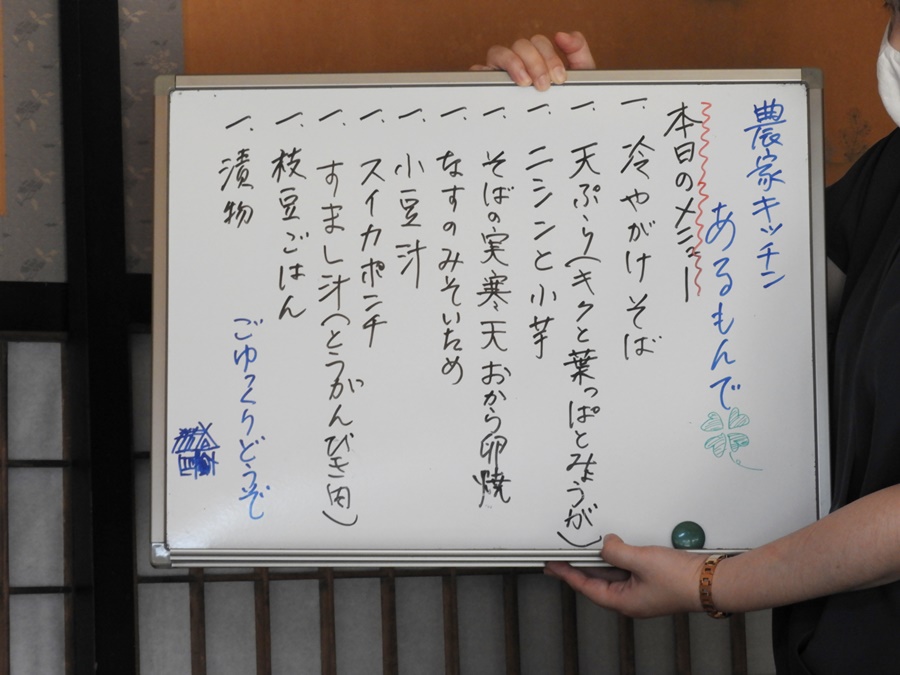 農家キッチン
あるもんで
本日のメニュー
一、冷やがけそば
一、天ぷら(キクと葉っぱとみょうが)
一、ニシンと小芋
一、そばの実寒天 おから卵焼
一、なすのみそいため
一、小豆汁
一、スイカポンチ
一、すまし汁(とうがんひき肉)
一、枝豆ごはん
一、漬物
ごゆっくりどうぞ